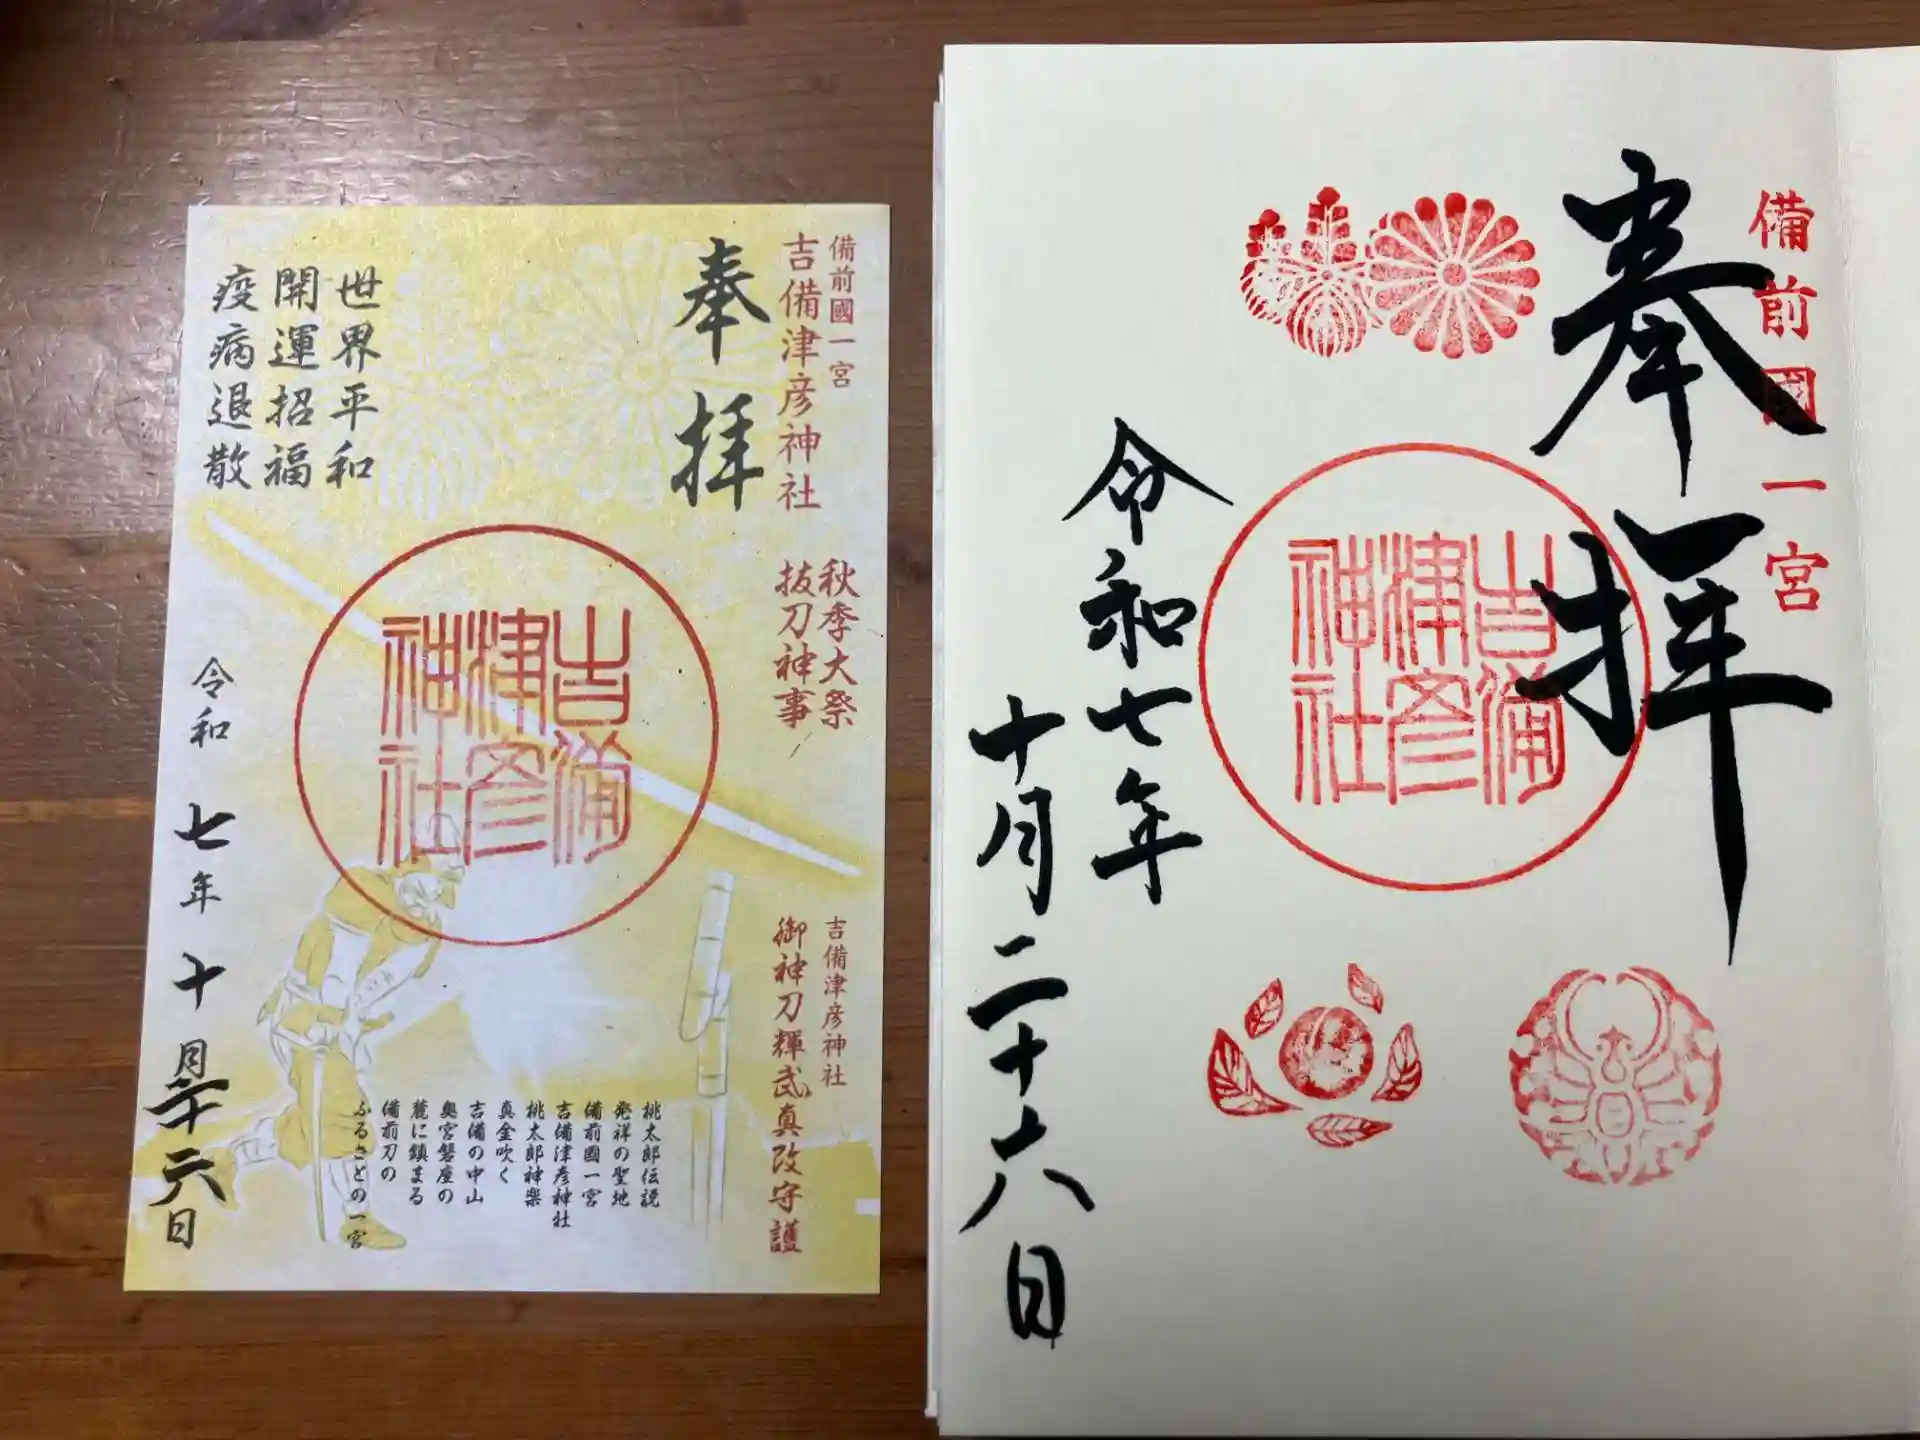 備前國一宮
吉備津彦神社
奉拝
世界平和
開運招福
疫病退散
秋季大祭
抜刀神事
吉備
津彦
神社
令和七年十月二十六日
吉備津彦神社
御神刀輝武真改守護
桃太郎伝説
発祥の聖地
備前國一宮
吉備津彦神社
桃太郎神楽
真金吹く
吉備の中山
奥宮磐座の
麓に鎮まる
備前刀の
ふるさとの一宮
備前國一宮
奉拝
吉備
津彦
神社
令和七年
十月二十六日